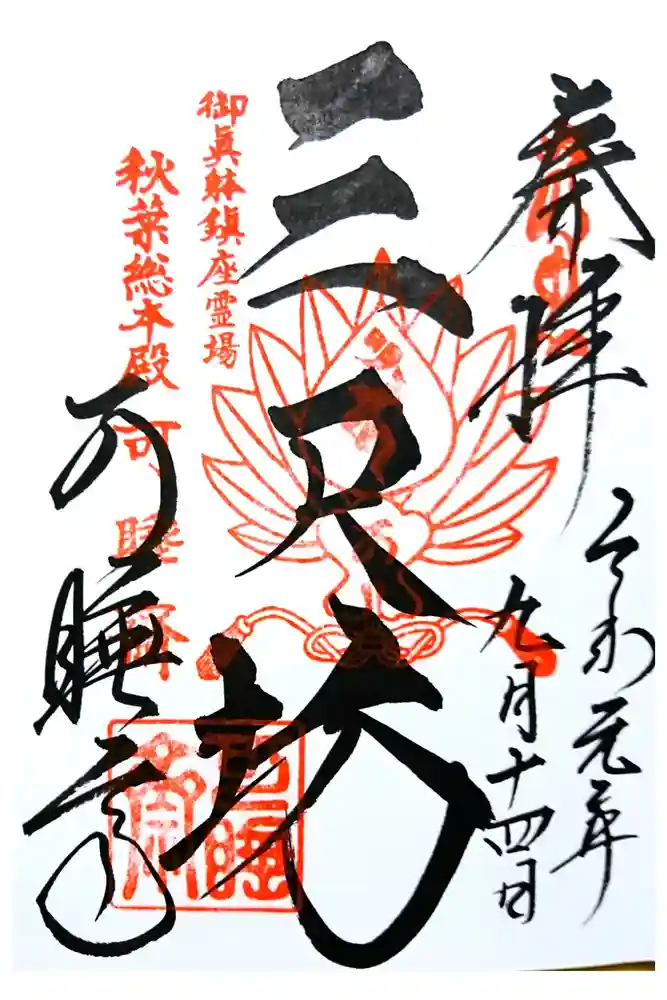 奉拝
令和元年
九月十四日
三尺坊
御真躰鎮座霊場
秋葉総本殿 可睡斎
可睡斎
可睡斎